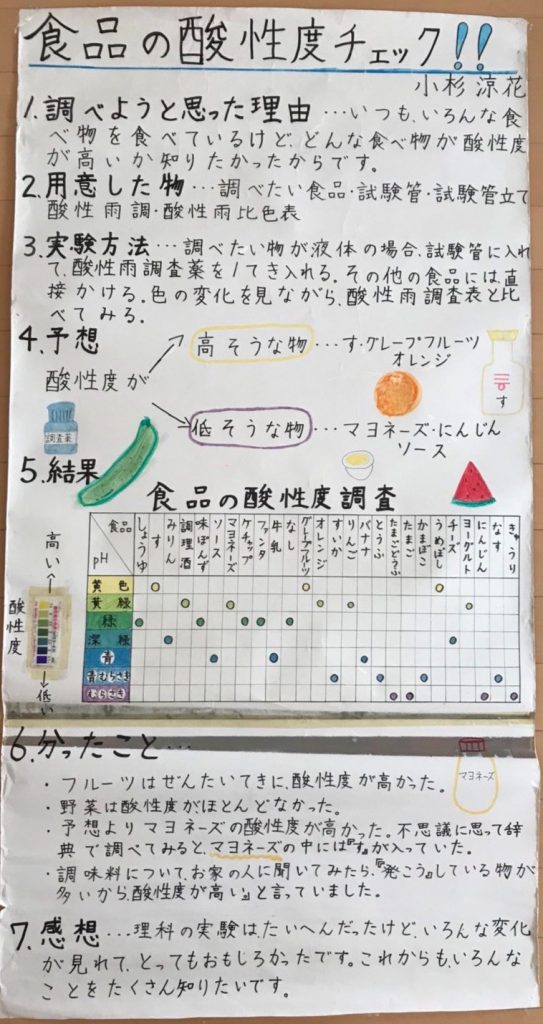 食品の酸性度チェック!!
小杉 涼花
1.調べようと思った理由…いつも、いろんな食
べ物を食べているけど、どんな食べ物が酸性度
が高いか知りたかったからです。
2.用意した物…調べたい食品・試験管・試験管立て
酸性雨調・酸性雨比色表
3.実験方法…調べたい物が液体の場合、試験管に入れ
て、酸性雨調査薬を1てき入れる。その他の食品には、直
接かける。色の変化を見ながら、酸性雨調査表と比
べてみる。
4.予想
高そうな物…す・グレープフルーツ
オレンジ
酸性度が
す
調査薬
低そうな物…マヨネーズ・にんじん
ソース
5.結果
食品の酸性度調査
高い
酸性度
低い
食品
pH
しょうゆ
す
みりん
調理酒
味ぽんず
ソース
マヨネーズ
ケチャップ
ファンタ
牛乳
なし
グレープフルーツ
オレンジ
すいか
りんご
バナナ
とうふ
たまごどうふ
たまご
かまぼこ
うめぼし
チーズ
ヨーグルト
にんじん
なす
きゅうり
黄色
黄緑
緑
深緑
青
青むらさき
むらさき
6.分ったこと…
マヨネーズ
・フルーツはぜんたいてきに、酸性度が高かった。
・野菜は酸性度がほとんどなかった。
・予想よりマヨネーズの酸性度が高かった。不思議に思って辞
典で調べてみると、マヨネーズの中には『す』が入っていた。
・調味料について、お家の人に聞いてみたら、『発こう』している物が
多いから、酸性度が高い」と言っていました。
7.感想…理科の実験は、たいへんだったけど、いろんな変化
が見れて、とってもおもしろかったです。これからも、いろんな
ことをたくさん知りたいです。